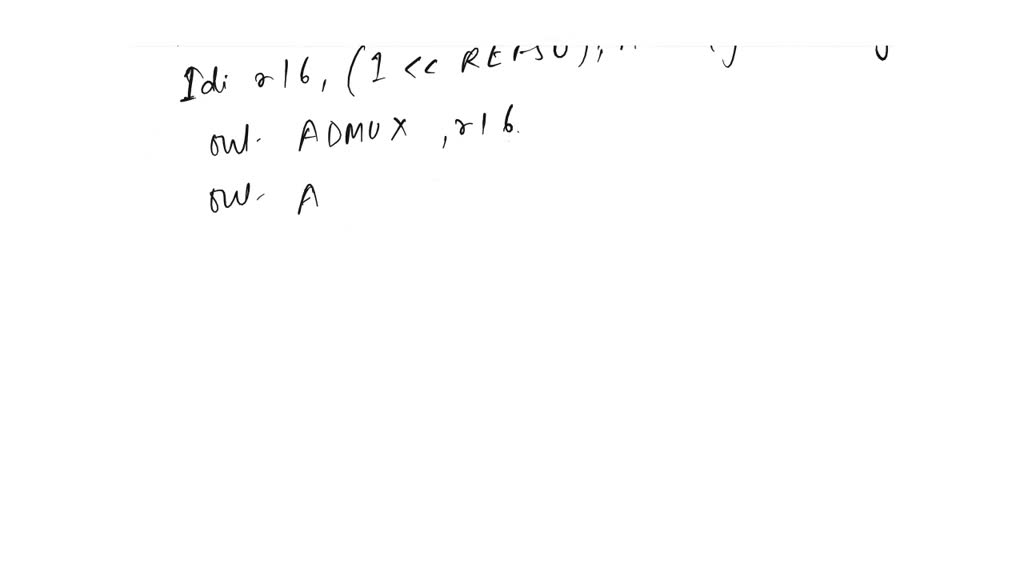 Idi r16, (1 << REFS0);
out ADMUX ,r16.
out A